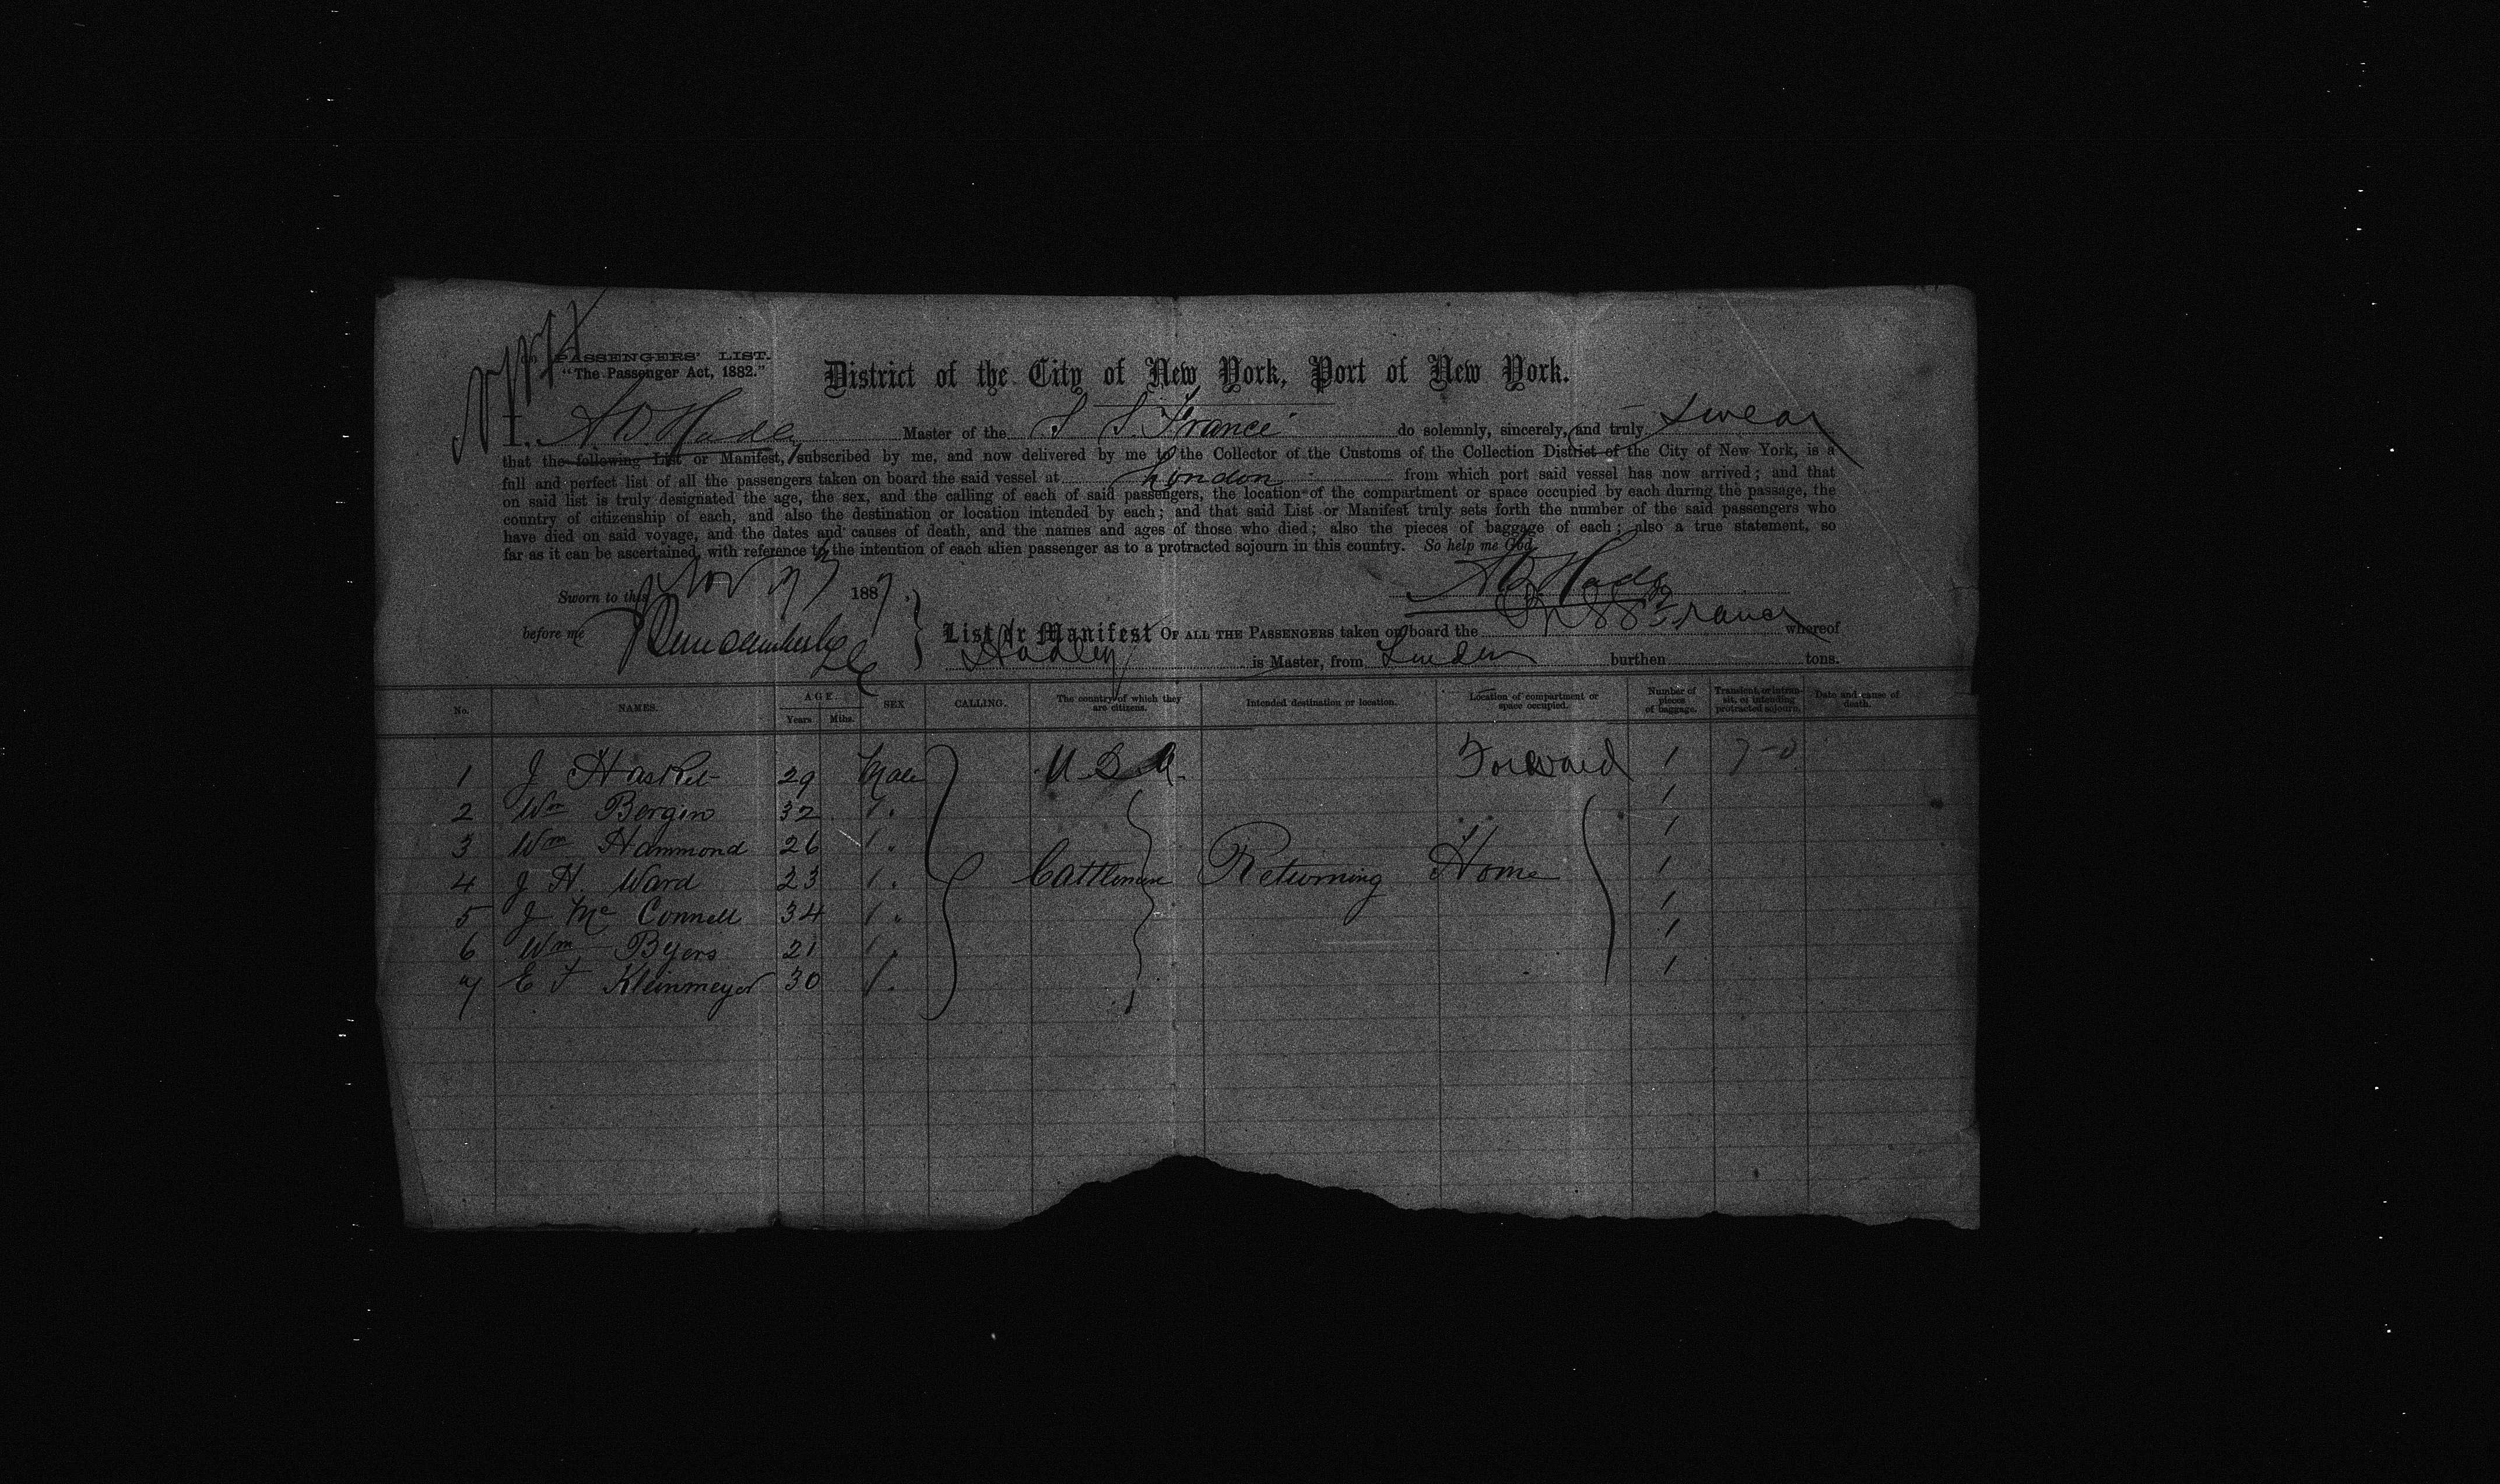 PASSENGERS' LIST.
"The Passenger Act, 1882."
District of the City of New York, Port of New York.
I, A. D. Hadley Master of the S S. France do solemnly, sincerely, and truly swear
that the following List or Manifest, subscribed by me, and now delivered by me to the Collector of the Customs of the Collection District of the City of New York, is a
full and perfect list of all the passengers taken on board the said vessel at London from which port said vessel has now arrived; and that
on said list is truly designated the age, the sex, and the calling of each of said passengers, the location of the compartment or space occupied by each during the passage, the
country of citizenship of each, and also the destination or location intended by each; and that said List or Manifest truly sets forth the number of the said passengers who
have died on said voyage, and the dates and causes of death, and the names and ages of those who died; also the pieces of baggage of each; also a true statement, so
far as it can be ascertained, with reference to the intention of each alien passenger as to a protracted sojourn in this country. So help me God
Sworn to this Nov 1887.
before me
List or Manifest OF ALL THE PASSENGERS taken on board the SS France whereof
Hadley is Master, from London burthen tons.
No. NAMES. AGE. Years Mths. SEX CALLING. The country of which they are citizens. Intended destination or location. Location of compartment or space occupied. Number of pieces of baggage. Transient, or in transit, or intending protracted sojourn. Date and cause of death.
1 J Hasket 29 Male U S A. Forward 1
2 Wm Bergin 32 " 1
3 Wm Hammond 26 " 1
4 J H. Ward 23 " Cattlemen Returning Home 1
5 J Mc Connell 34 " 1
6 Wm Byers 21 " 1
7 E F Kleinmeyer 30 " 1